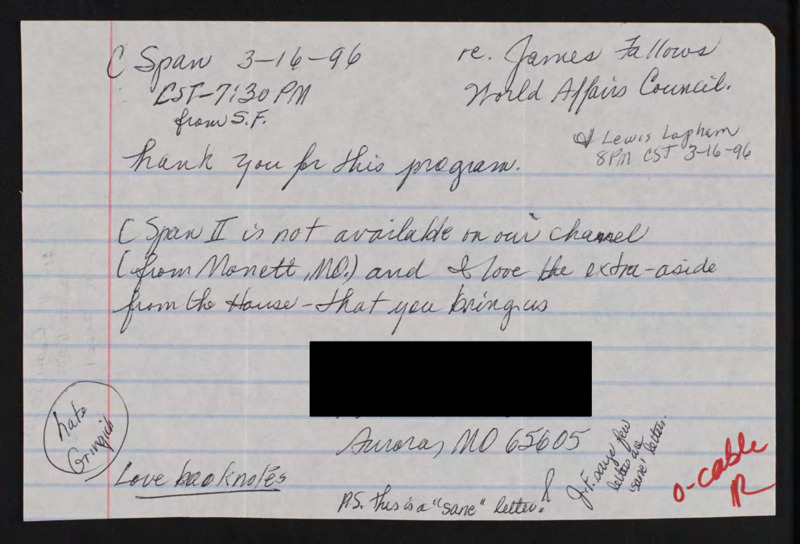 C Span 3-16-96
re. James Fallows
CST-7:30 PM
World Affairs Council.
from S.F.
& Lewis Lapham
8PM CST 3-16-96
Thank you for this program.
C Span II is not available on our channel
(from Monett, MO.) and I love the extra-aside
from the House - that you bring us
hate
Gingrich
Aurora, MO 65605
Love booknotes
P.S. This is a "sane" letter!
J.F. says few
letters are
sane letters.
O-cable
R